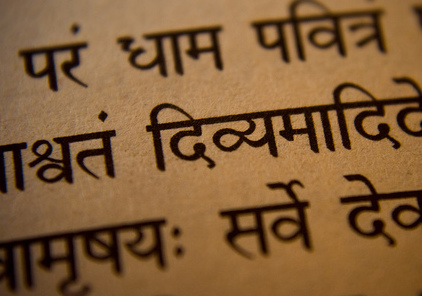 परं धाम पवित्र
ाश्वतं दिव्यमादिदे
वामृषयः सर्वे देव